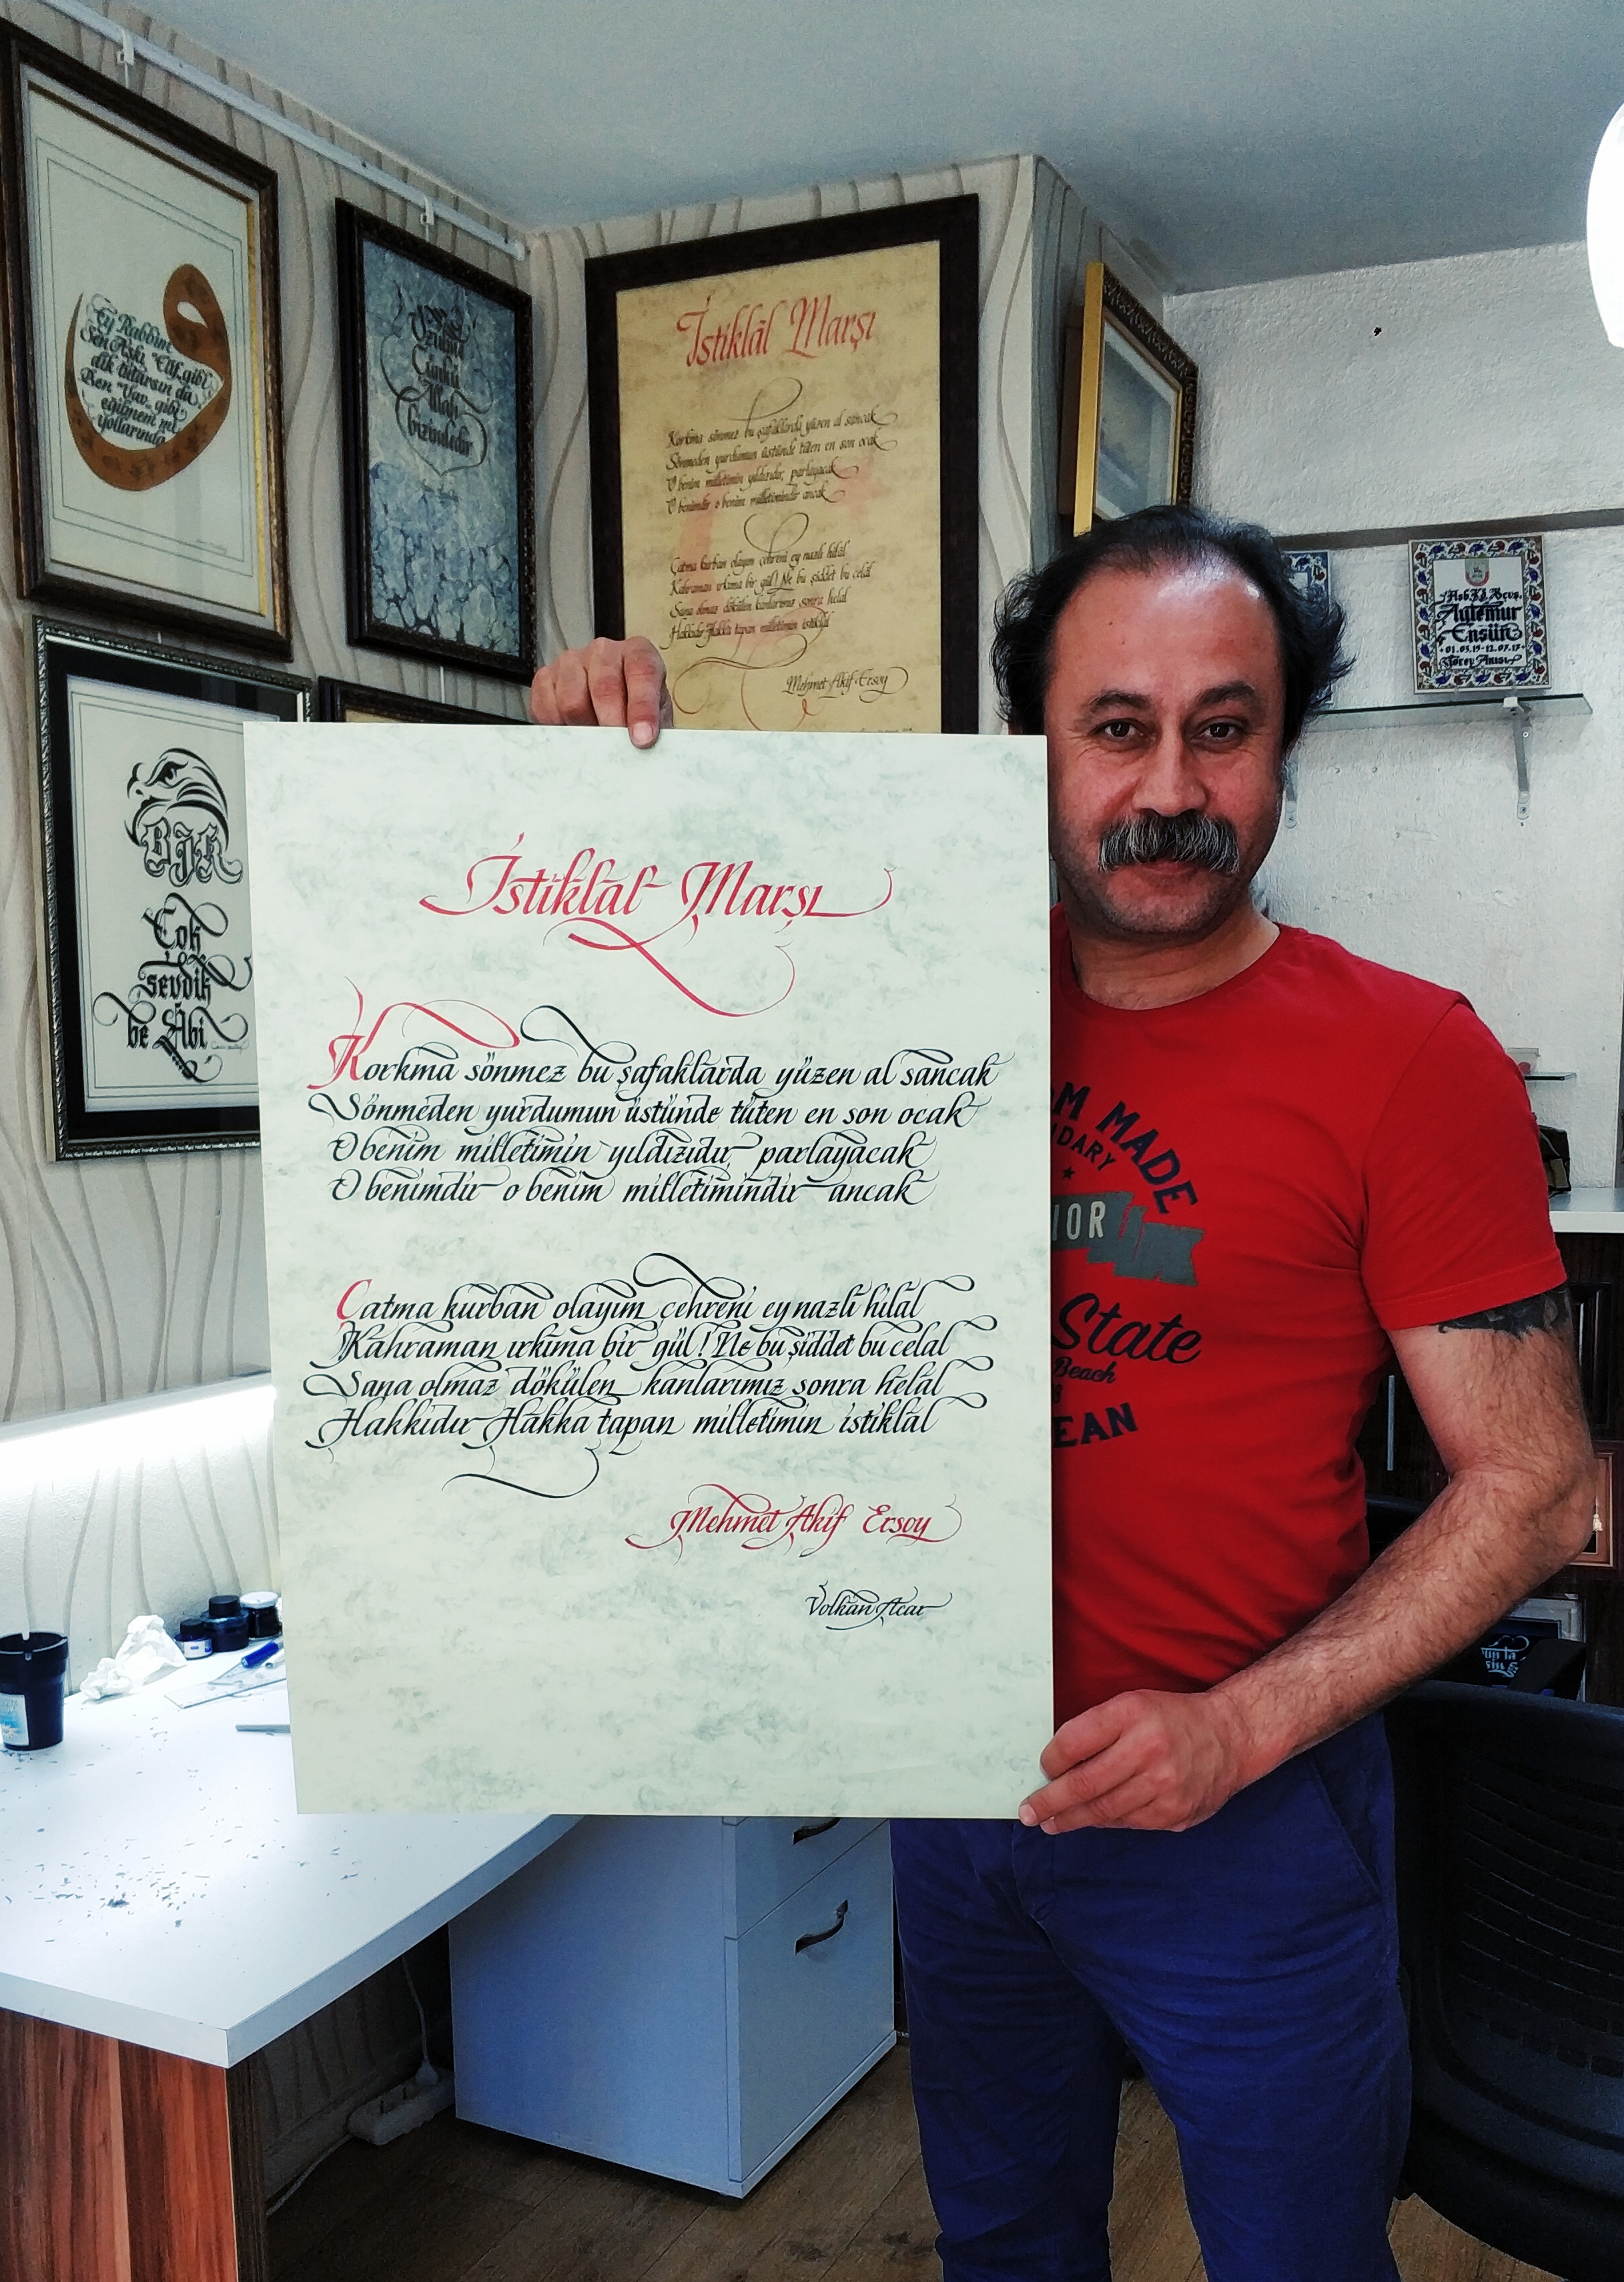 Ey Rabbim
Sen Aşkı, "Elif" gibi
dik tutarsın da
Ben "Vav" gibi
eğilmem mi
yollarında
Üzülme
Çünkü
Allah
bizimledir
İstiklâl Marşı
Korkma sönmez bu şafaklarda yüzen al sancak
Sönmeden yurdumun üstünde tüten en son ocak
O benim milletimin yıldızıdır, parlayacak
O benimdir o benim milletimindir ancak
Çatma kurban olayım çehreni ey nazlı hilâl
Kahraman ırkıma bir gül! Ne bu şiddet bu celâl
Sana olmaz dökülen kanlarımız sonra helâl
Hakkıdır Hakka tapan milletimin istiklâl
Mehmet Akif Ersoy
BJK
Çok
sevdik
be Abi
Aytemur
Ensün
01.03.15-12.07.17
Görev Anısı
İstiklâl Marşı
Korkma sönmez bu şafaklarda yüzen al sancak
Sönmeden yurdumun üstünde tüten en son ocak
O benim milletimin yıldızıdır, parlayacak
O benimdir o benim milletimindir ancak
Çatma kurban olayım çehreni ey nazlı hilâl
Kahraman ırkıma bir gül! Ne bu şiddet bu celal
Sana olmaz dökülen kanlarımız sonra helâl
Hakkıdır Hakka tapan milletimin istiklâl
Mehmet Akif Ersoy
Volkan Acar
MADE
State
Beach